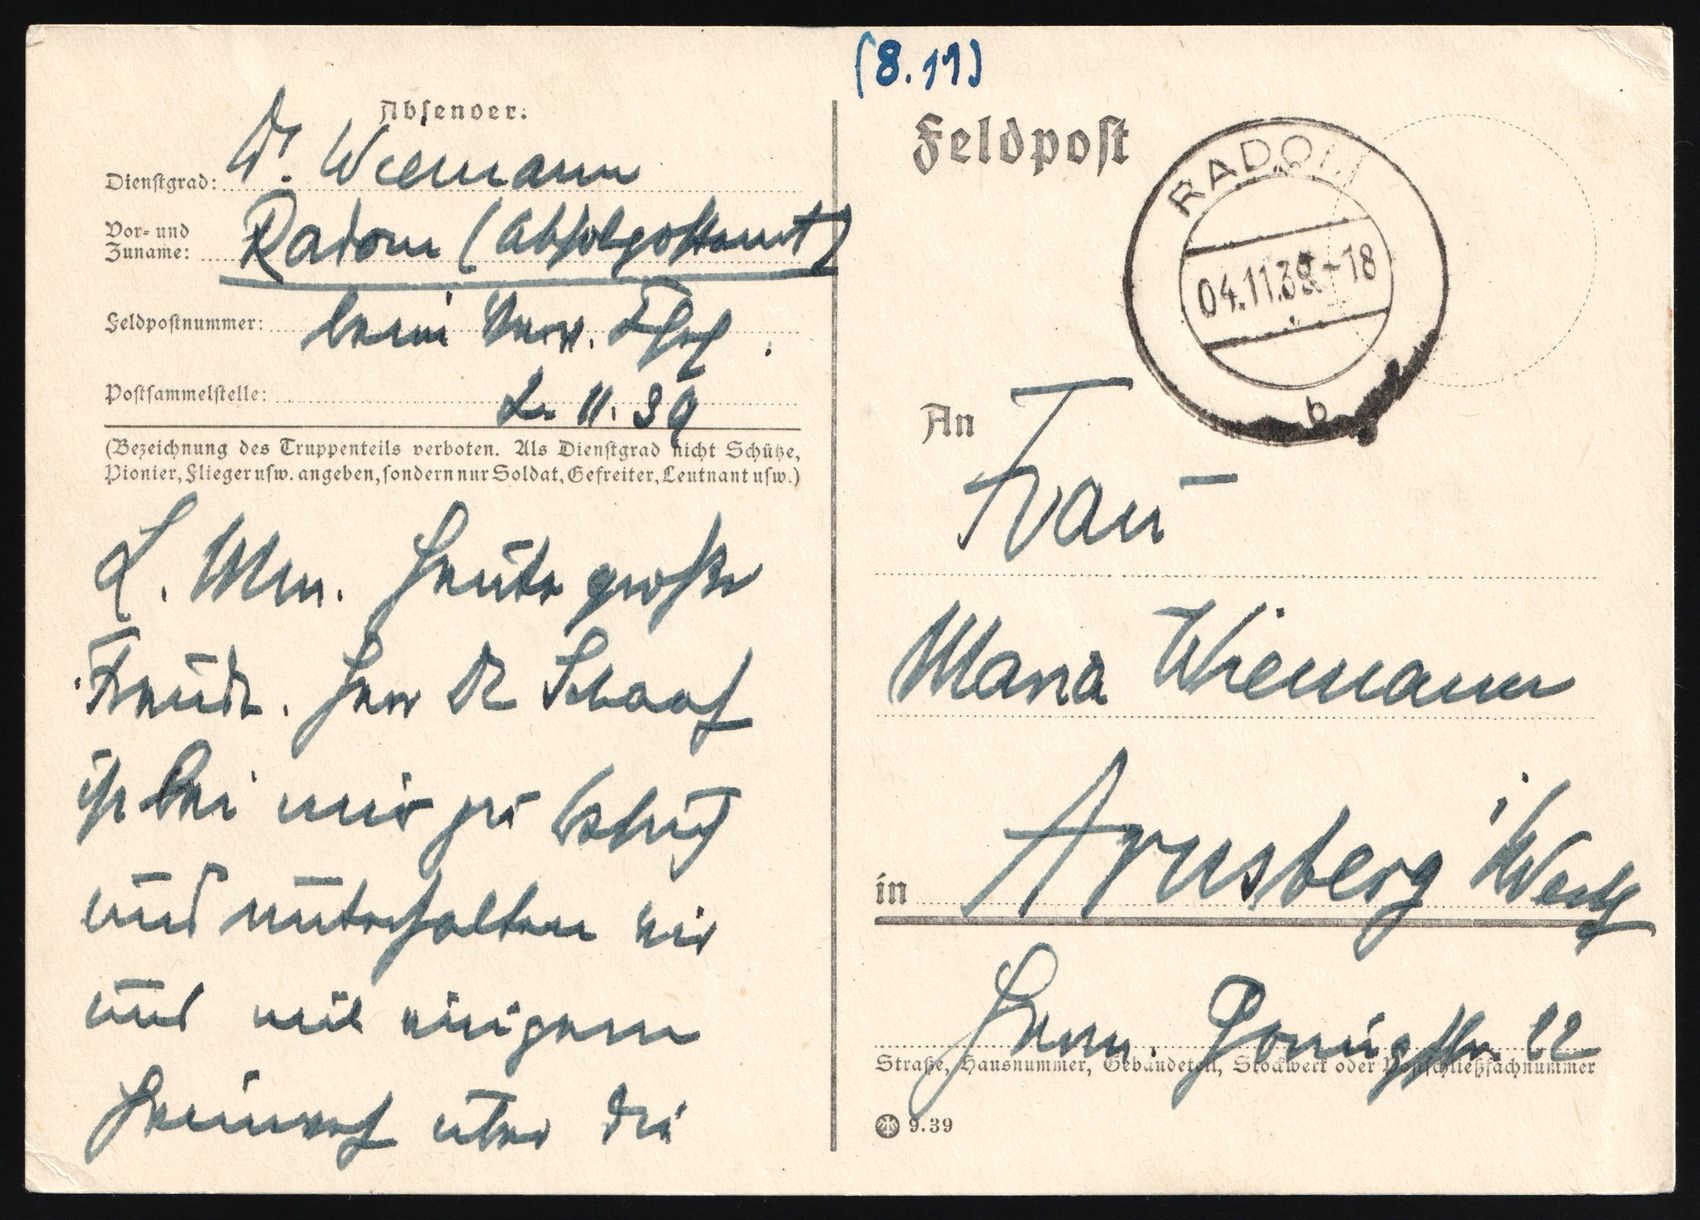 (8.11)
Absender:
Dienstgrad: Dr. Wiemann
Vor- und
Zuname: Radom
Feldpostnummer: beim
Postsammelstelle: 2. 11. 39
(Bezeichnung des Truppenteils verboten. Als Dienstgrad nicht Schütze,
Pionier, Flieger usw. angeben, sondern nur Soldat, Gefreiter, Leutnant usw.)
L. Mm. Heute große
Freude. Herr Dr Schaaf
ist bei mir zu Besuch
und unterhalten wir
uns mit einigem
Heimweh über die
Feldpost
RADOM
04.11.39.-18
b
An
Frau
Maria Wiemann
in Arnsberg i/Westf
Herm. 22
Straße, Hausnummer, Gebäudeteil, Stockwerk oder Postschließfachnummer
9.39